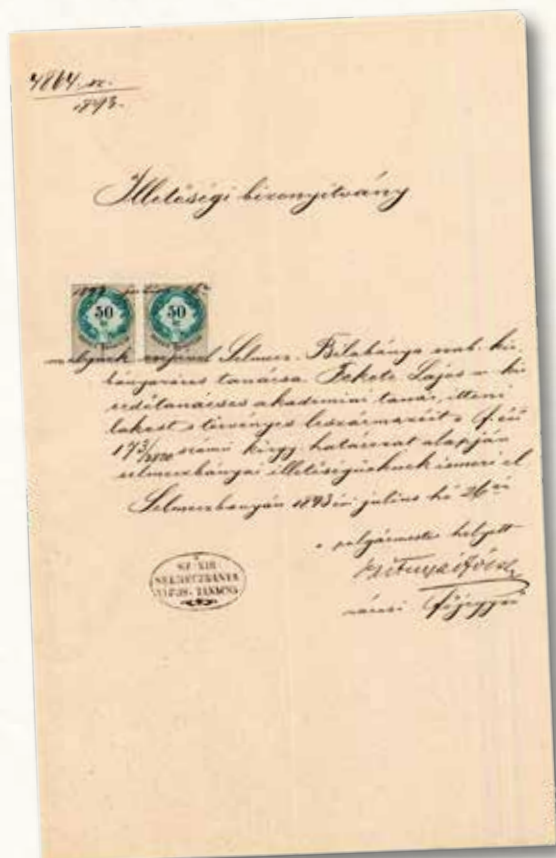 4864. sz.
1893.
Illetőségi bizonyítvány
1893 július 26
50
50
melynek erejénél Selmecz-Bélabánya szab. kir.
bányaváros tanácsa Fekete Lajos m. kir
erdőtanácsos akadémiai tanár, itteni
lakost s törvényes leszármazóit a f. évi
173/ számú közgy. határozat alapján
selmeczbányai illetőségüeknek ismeri el
Selmeczbányán 1893 évi július hó 26án
a polgármester helyett
városi főjegyző
SZ. KIR
SELMECZBÁNYA
VÁROS TANÁCSA